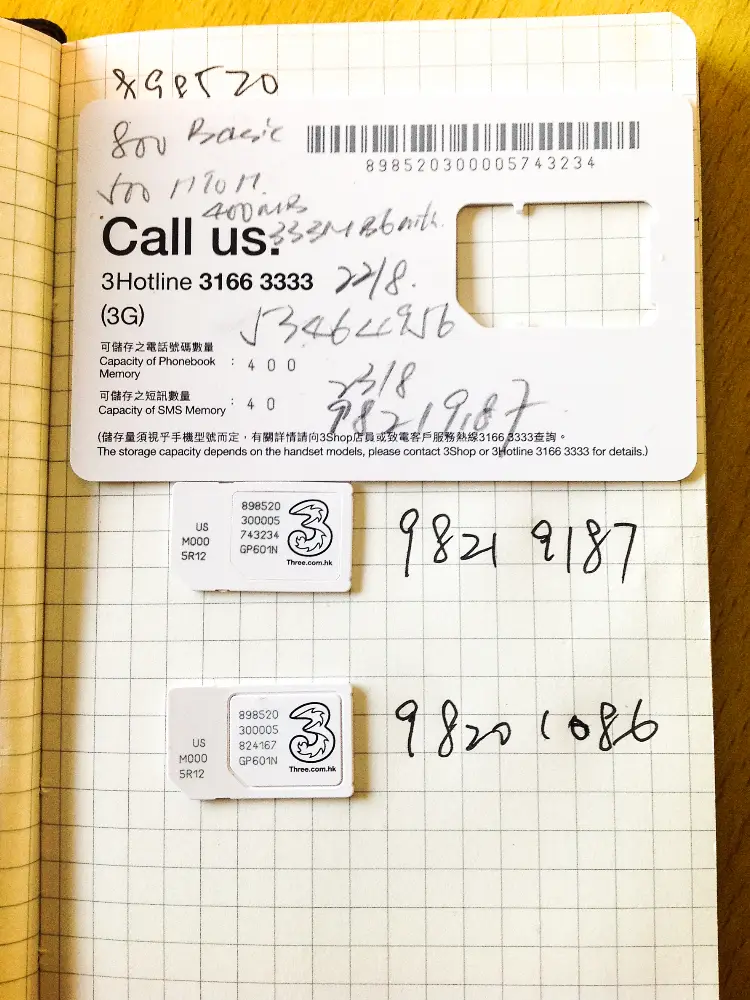 898520
800 Basic
898520300005743234
400MB
Call us.
333MB
3Hotline 3166 3333
22/8.
(3G)
可儲存之電話號碼數量
Capacity of Phonebook Memory : 400
23/8
可儲存之短訊數量
Capacity of SMS Memory : 40
98219187
(儲存量須視乎手機型號而定，有關詳情請向3Shop店員或致電客戶服務熱線3166 3333查詢。
The storage capacity depends on the handset models, please contact 3Shop or 3Hotline 3166 3333 for details.)
US
M000
5R12
898520
300005
743234
GP601N
3
Three.com.hk
9821 9187
US
M000
5R12
898520
300005
824167
GP601N
3
Three.com.hk
9820 1086